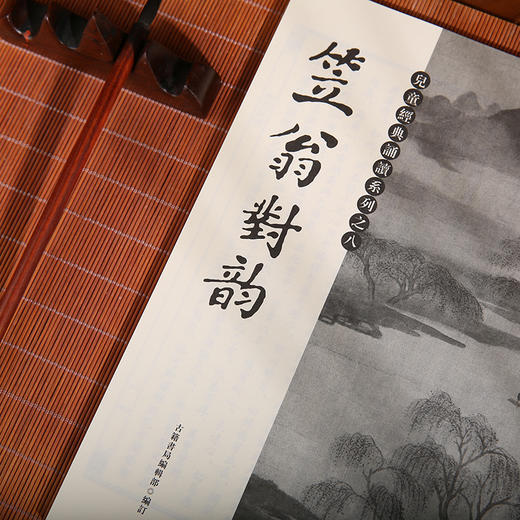 兒童經典誦讀系列之八
笠翁對韵
古籍書局編輯部◎編訂